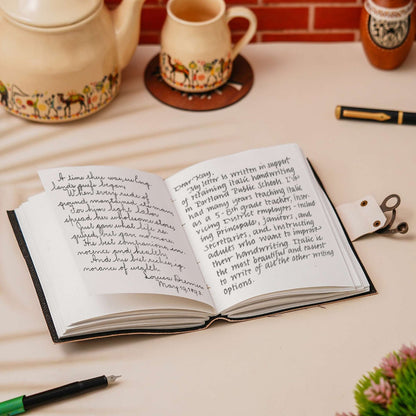 A time there was, as long
before
When every rood of
ground maintained its man
For him light labor
spread her wholesome store
Just gave what life re-
quired, but gave no more
His best companions, in-
nocence and health
And his best riches, ig-
norance of wealth.
Louisa
May 19, 1893.
Dear Kay,
My letter is written in support
of retaining italic handwriting
in Portland Public Schools. I've
had many years teaching italic
as a 5-8th grade teacher, inser-
vicing District employees - includ-
ing principals, janitors, and
secretaries, and instructing
adults who want to improve
their handwriting. Italic is
the most beautiful and easiest
to write of all the other writing
options.